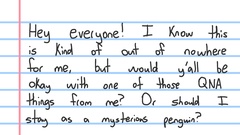 Hey everyone! I know this
is kind of out of nowhere
for me, but would y'all be
okay with one of those QNA
things from me? Or should I
stay as a mysterious penguin?